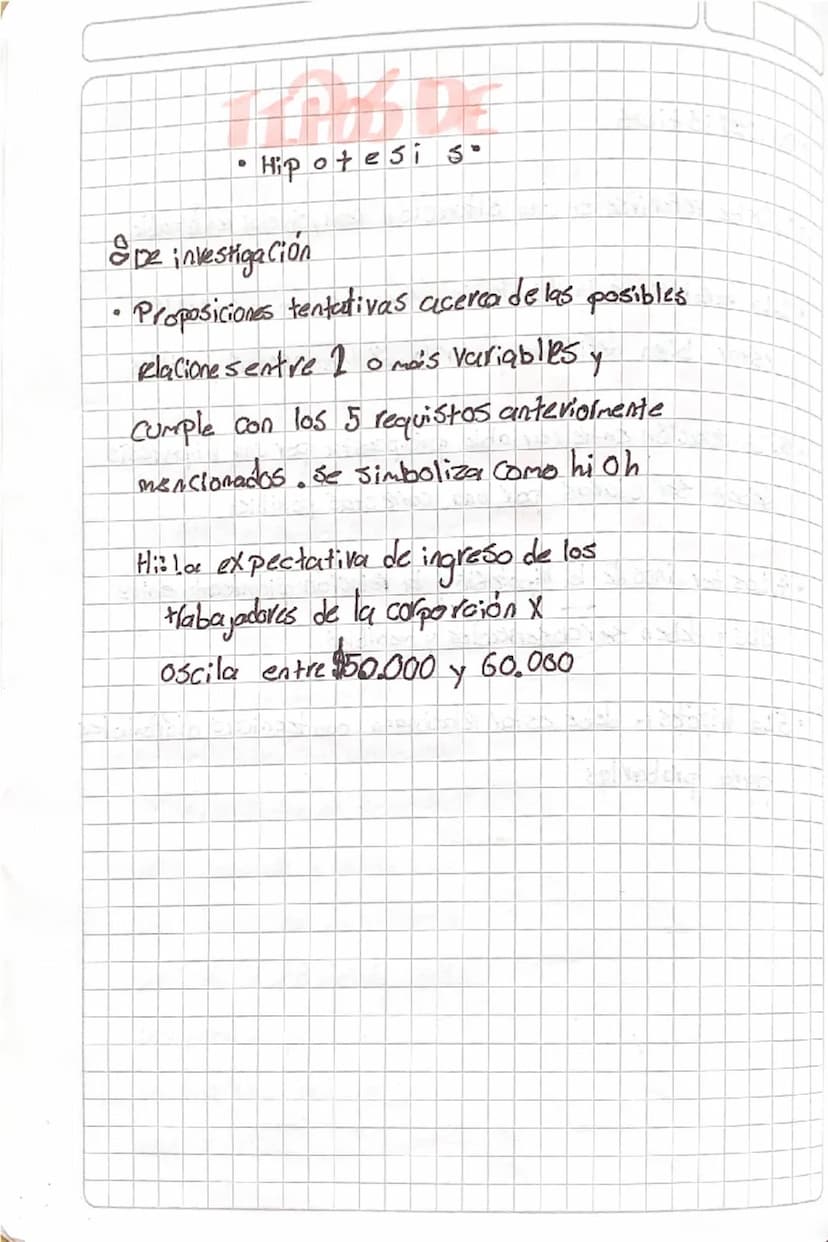 TIPOS DE
• Hipotesis•
De investigación
• Proposiciones tentativas acerca de las posibles
relaciones entre 2 o más variables y
cumple con los 5 requistos anteriormente
mencionados. se simboliza como hi o h
Hi: La expectativa de ingreso de los
trabajadores de la corporción X
oscila entre $50.000 y 60.000